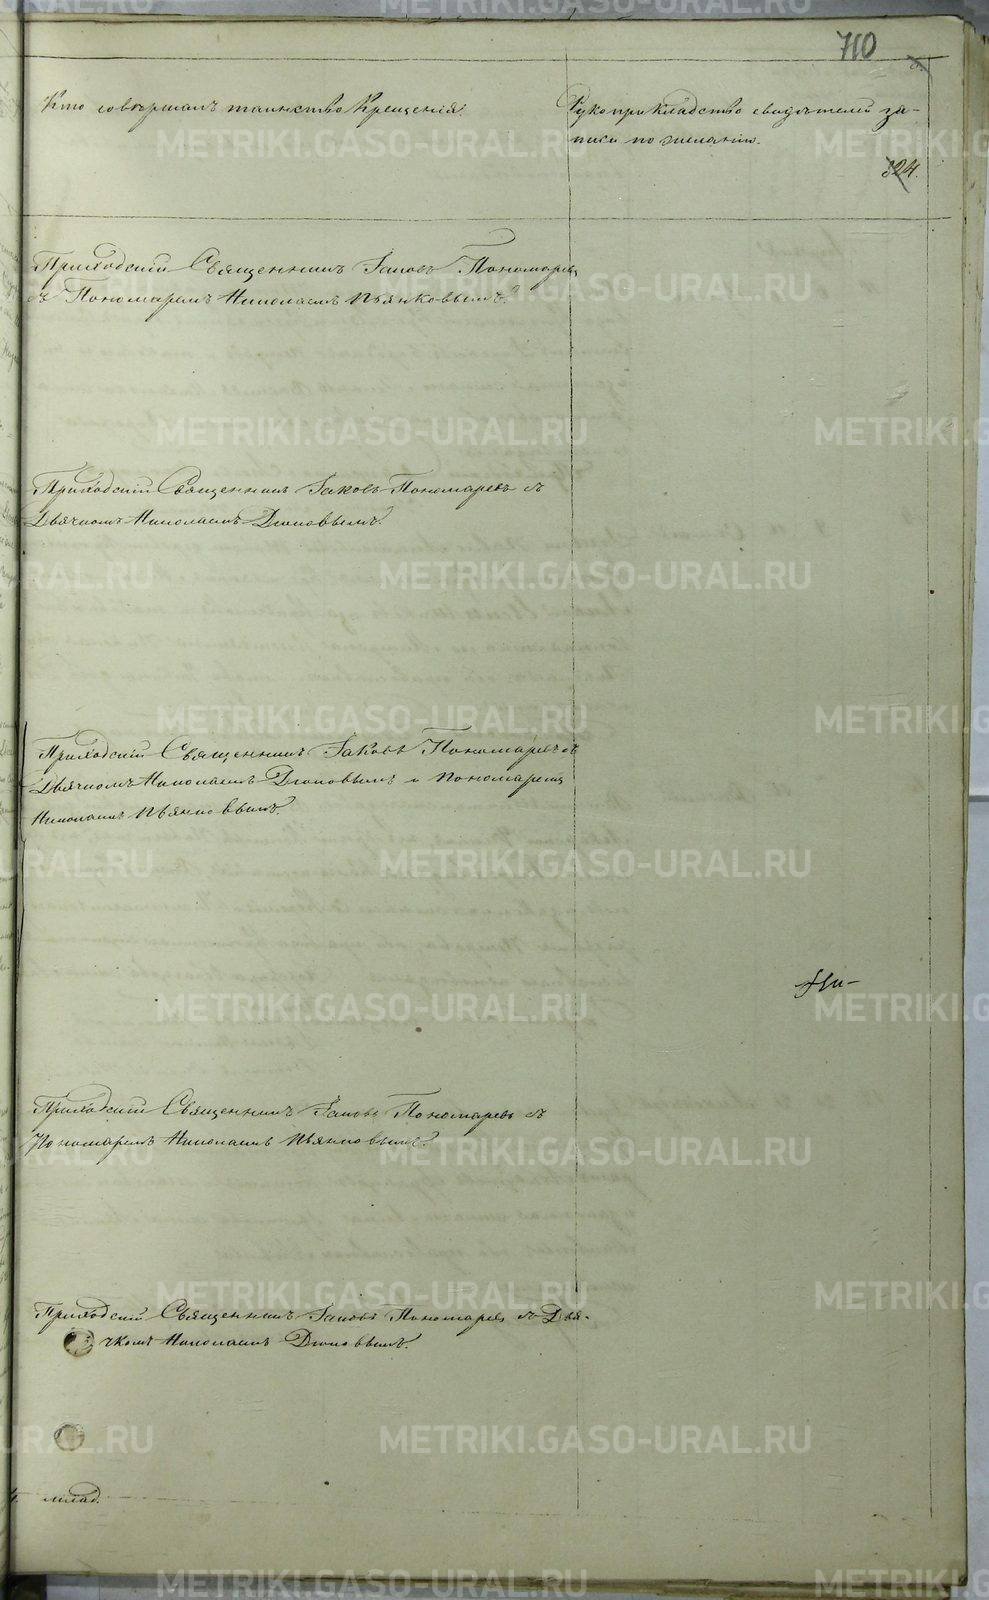 710
Кто совершалъ таинство Крещенія.
Рукоприкладство свидѣтелей за-
писи по желанію.
324.
Приходскій Священникъ Іаковъ Пономаревъ
съ Пономаремъ Николаемъ Пьянковымъ.
Приходскій Священникъ Іаковъ Пономаревъ съ
Дьячкомъ Николаемъ Діоповымъ.
Приходскій Священникъ Іаковъ Пономаревъ съ
Дьячкомъ Николаемъ Діоповымъ и Пономаремъ
Николаемъ Пьянковымъ.
Приходскій Священникъ Іаковъ Пономаревъ съ
Пономаремъ Николаемъ Пьянковымъ.
Приходскій Священникъ Іаковъ Пономаревъ съ Дья-
чкомъ Николаемъ Діоповымъ.
METRIKI.GASO-URAL.RU